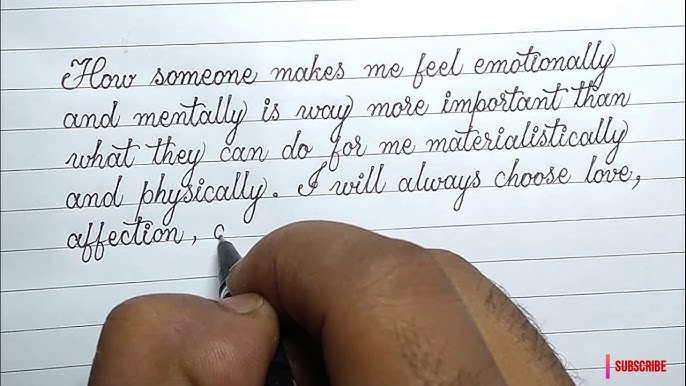 How someone makes me feel emotionally
and mentally is way more important than
what they can do for me materialistically
and physically. I will always choose love,
affection,
SUBSCRIBE